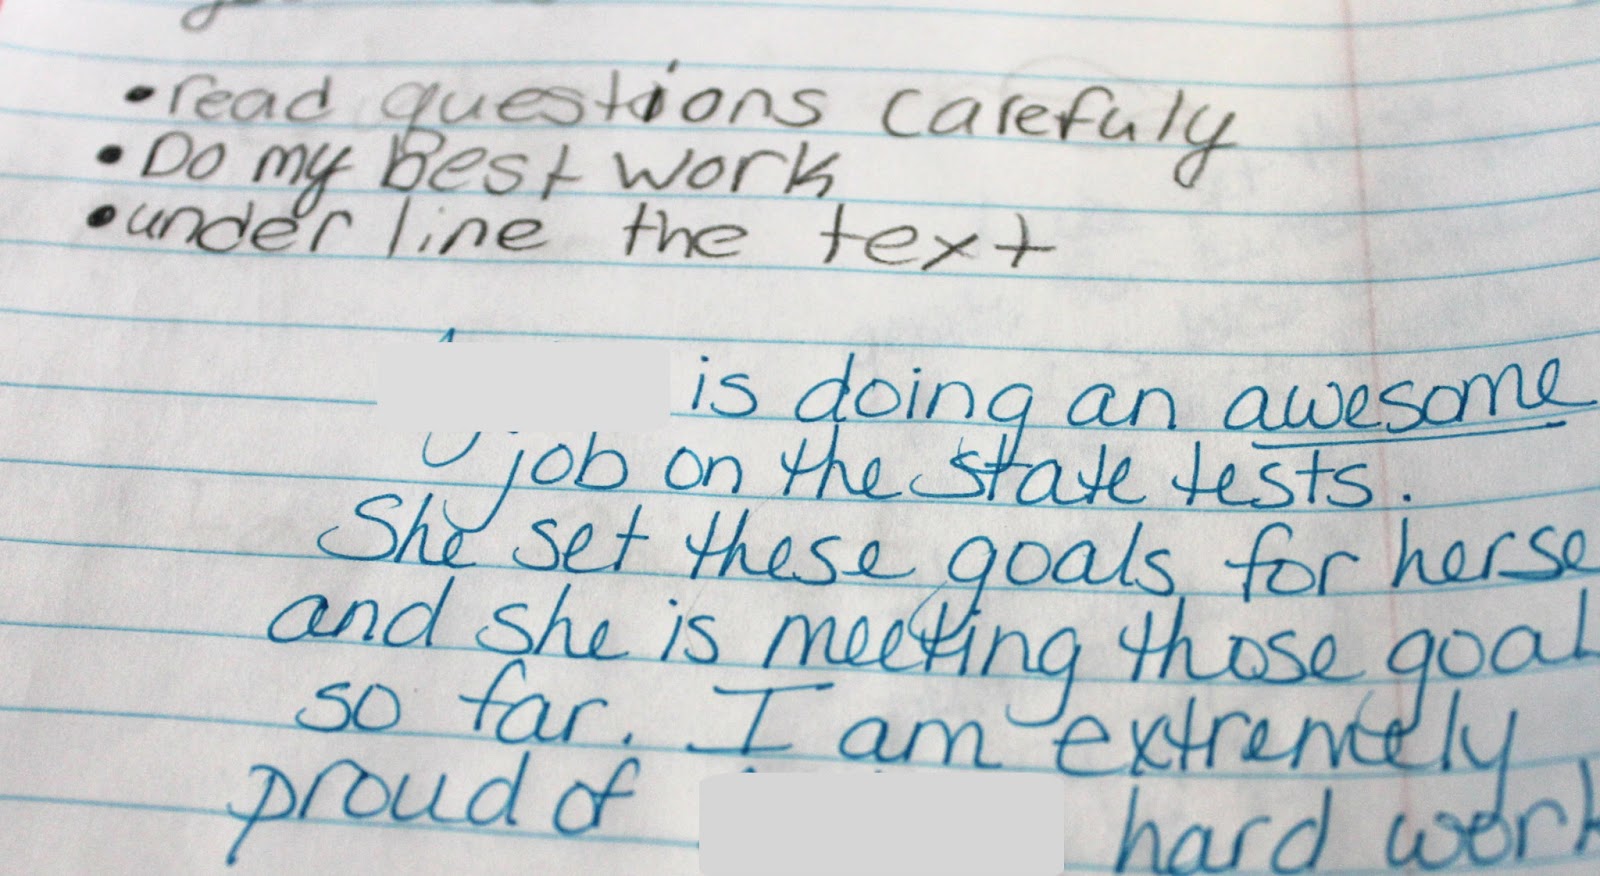 • read questions carefuly
• Do my Best work
• under line the text
is doing an awesome
job on the state tests.
She set these goals for herse
and she is meeting those goal
so far. I am extremely
proud of
hard work